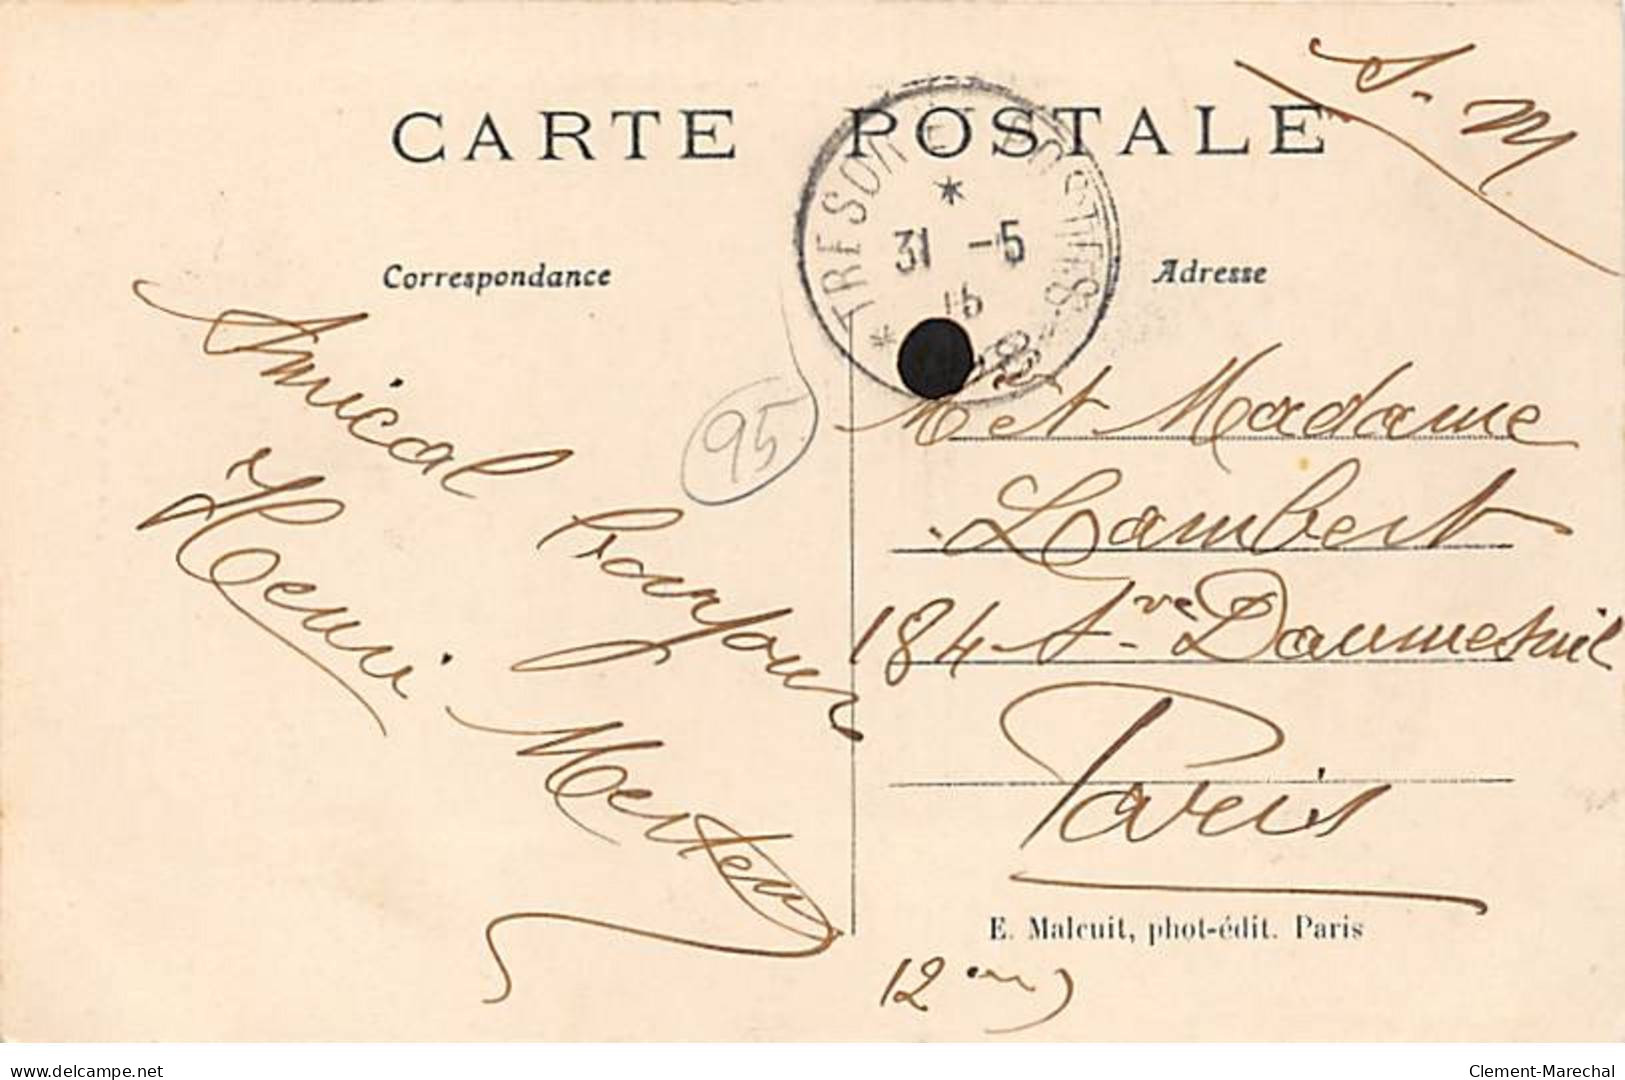 S. M
CARTE POSTALE
TRESOR ET POSTES * 8
*
31 -5
15
*
Correspondance
Adresse
Amical bonjour
Henri Mertens
95
M et Madame
Lambert
184 Ave Daumesnil
Paris
E. Malcuit, phot-édit. Paris
https://www.delcampe.net
Clement-Marechal